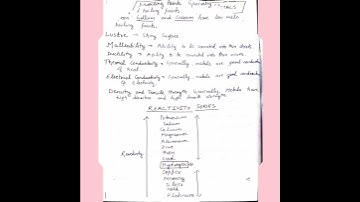 Melting Points
& boiling points.
Gallium and Caesium have low melt
boiling points.
Lustre → Shiny Surface
Malleability → Ability to be converted into thin sheet.
Ductility → Ability to be converted into thin wires.
Thermal Conductivity → Generally, metals are good conductors
of heat.
Electrical Conductivity → Generally, metals are good conductors
of electricity.
Density and Tensile Strength → Generally, metals have
high densities and high tensile strength.
REACTIVITY SERIES
Potassium
Sodium
Calcium
Magnesium
Aluminium
Zinc
Iron
Lead
Reactivity
Hydrogen
Copper
Mercury
Silver
Gold
Platinum